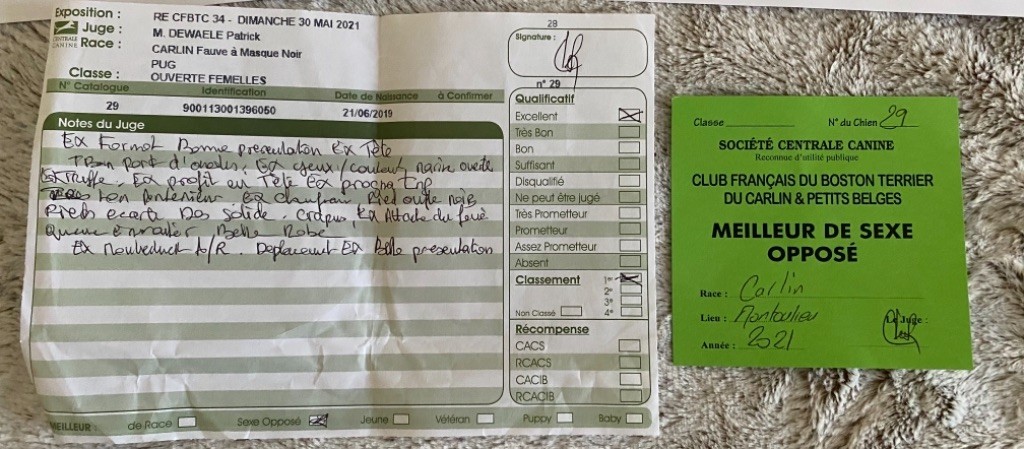 Exposition : RE CFBTC 34 - DIMANCHE 30 MAI 2021
Juge : M. DEWAELE Patrick
CENTRALE CANINE
Race : CARLIN Fauve à Masque Noir
PUG
Classe : OUVERTE FEMELLES
N° Catalogue Identification Date de Naissance à Confirmer
29 900113001396050 21/06/2019
Notes du Juge
Ex Format Bonne présentation Ex Tête
Ex yeux/couleur narine
Ex Truffe. Ex profil Tête Ex
Ex chanfrein Pied
Pieds Dos solide. Ex Attache du fouet
Queue Belle Robe
Ex A/R. Deplacement Ex Belle présentation
28
Signature :
n° 29
Qualificatif
Excellent
Très Bon
Bon
Suffisant
Disqualifié
Ne peut être jugé
Très Prometteur
Prometteur
Assez Prometteur
Absent
Classement 1er
2e
3e
Non Classé 4e
Récompense
CACS
RCACS
CACIB
RCACIB
MEILLEUR : de Race Sexe Opposé Jeune Vétéran Puppy Baby
Classe N° du Chien 29
SOCIÉTÉ CENTRALE CANINE
Reconnue d'utilité publique
CLUB FRANÇAIS DU BOSTON TERRIER
DU CARLIN & PETITS BELGES
MEILLEUR DE SEXE
OPPOSÉ
Race : Carlin
Lieu : Montoulieu
Le Juge :
Année : 2021